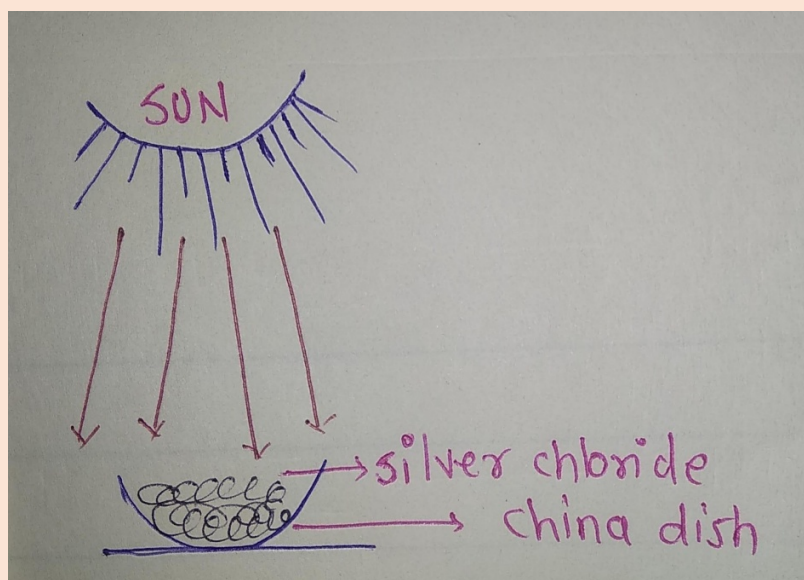 SUN
silver chloride
china dish